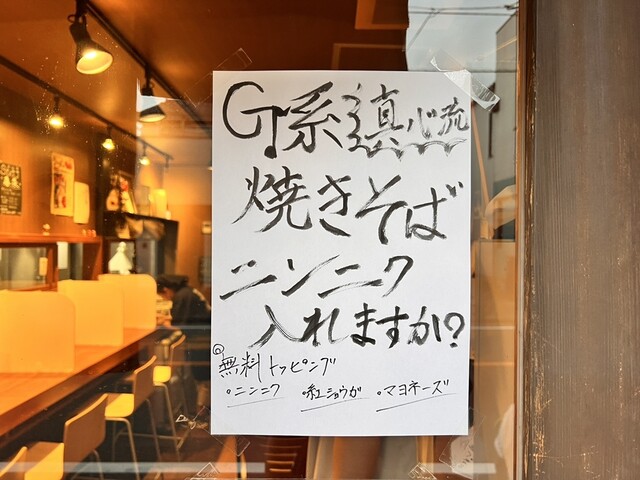 G系真心流
焼きそば
ニンニク
入れますか?
無料トッピング
・ニンニク ・紅ショウガ ・マヨネーズ